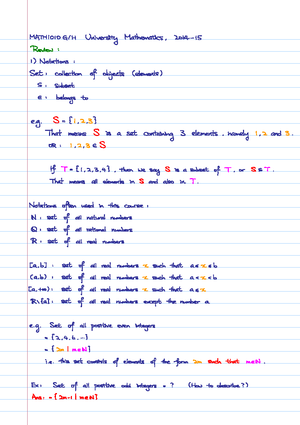 MATH1010G/H University Mathematics, 2014-15
Review:
1) Notations:
Set: collection of objects (elements)
⊆: subset
∈: belongs to
e.g. S = {1,2,3}
That means S is a set containing 3 elements, namely 1, 2 and 3.
OR: 1,2,3 ∈ S
If T = {1,2,3,4}, then we say S is a subset of T, or S ⊆ T.
That means all elements in S and also in T.
Notations often used in this course:
ℕ: set of all natural numbers
ℚ: set of all rational numbers
ℝ: set of all real numbers
[a,b]: set of all real numbers x such that a≤x≤b
(a,b): set of all real numbers x such that a<x<b
[a,+∞): set of all real numbers x such that a≤x
ℝ\{a}: set of all real numbers except the number a
e.g. Set of all positive even integers
= {2,4,6,...}
= {2m | m∈ℕ}
i.e. this set consists of elements of the form 2m such that m∈ℕ.
Ex: Set of all positive odd integers = ? (How to describe?)
Ans: = {2m-1 | m∈ℕ}